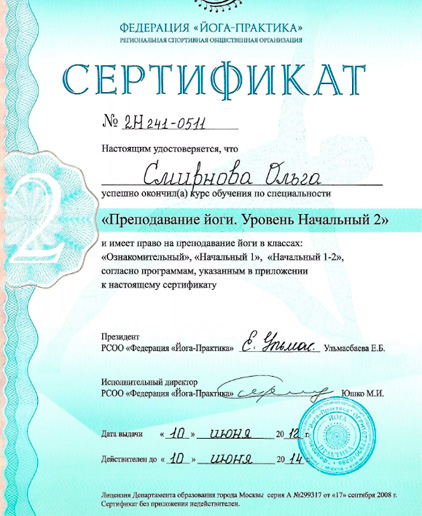 ФЕДЕРАЦИЯ «ЙОГА-ПРАКТИКА»
РЕГИОНАЛЬНАЯ СПОРТИВНАЯ ОБЩЕСТВЕННАЯ ОРГАНИЗАЦИЯ
СЕРТИФИКАТ
№ 2Н241-0511
Настоящим удостоверяется, что
Смирнова Ольга
успешно окончил(а) курс обучения по специальности
2
«Преподавание йоги. Уровень Начальный 2»
и имеет право на преподавание йоги в классах:
«Ознакомительный», «Начальный 1», «Начальный 1-2»,
согласно программам, указанным в приложении
к настоящему сертификату
Президент
РСОО «Федерация «Йога-Практика» Е. Ульмас. Ульмасбаева Е.Б.
Исполнительный директор
РСОО «Федерация «Йога-Практика» Юшко М.И.
Дата выдачи « 10 » июня 2012 г.
Действителен до « 10 » июня 2014
ЙОГА
ПРАКТИКА
Лицензия Департамента образования города Москвы серия А №299317 от «17» сентября 2008 г.
Сертификат без приложения недействителен.